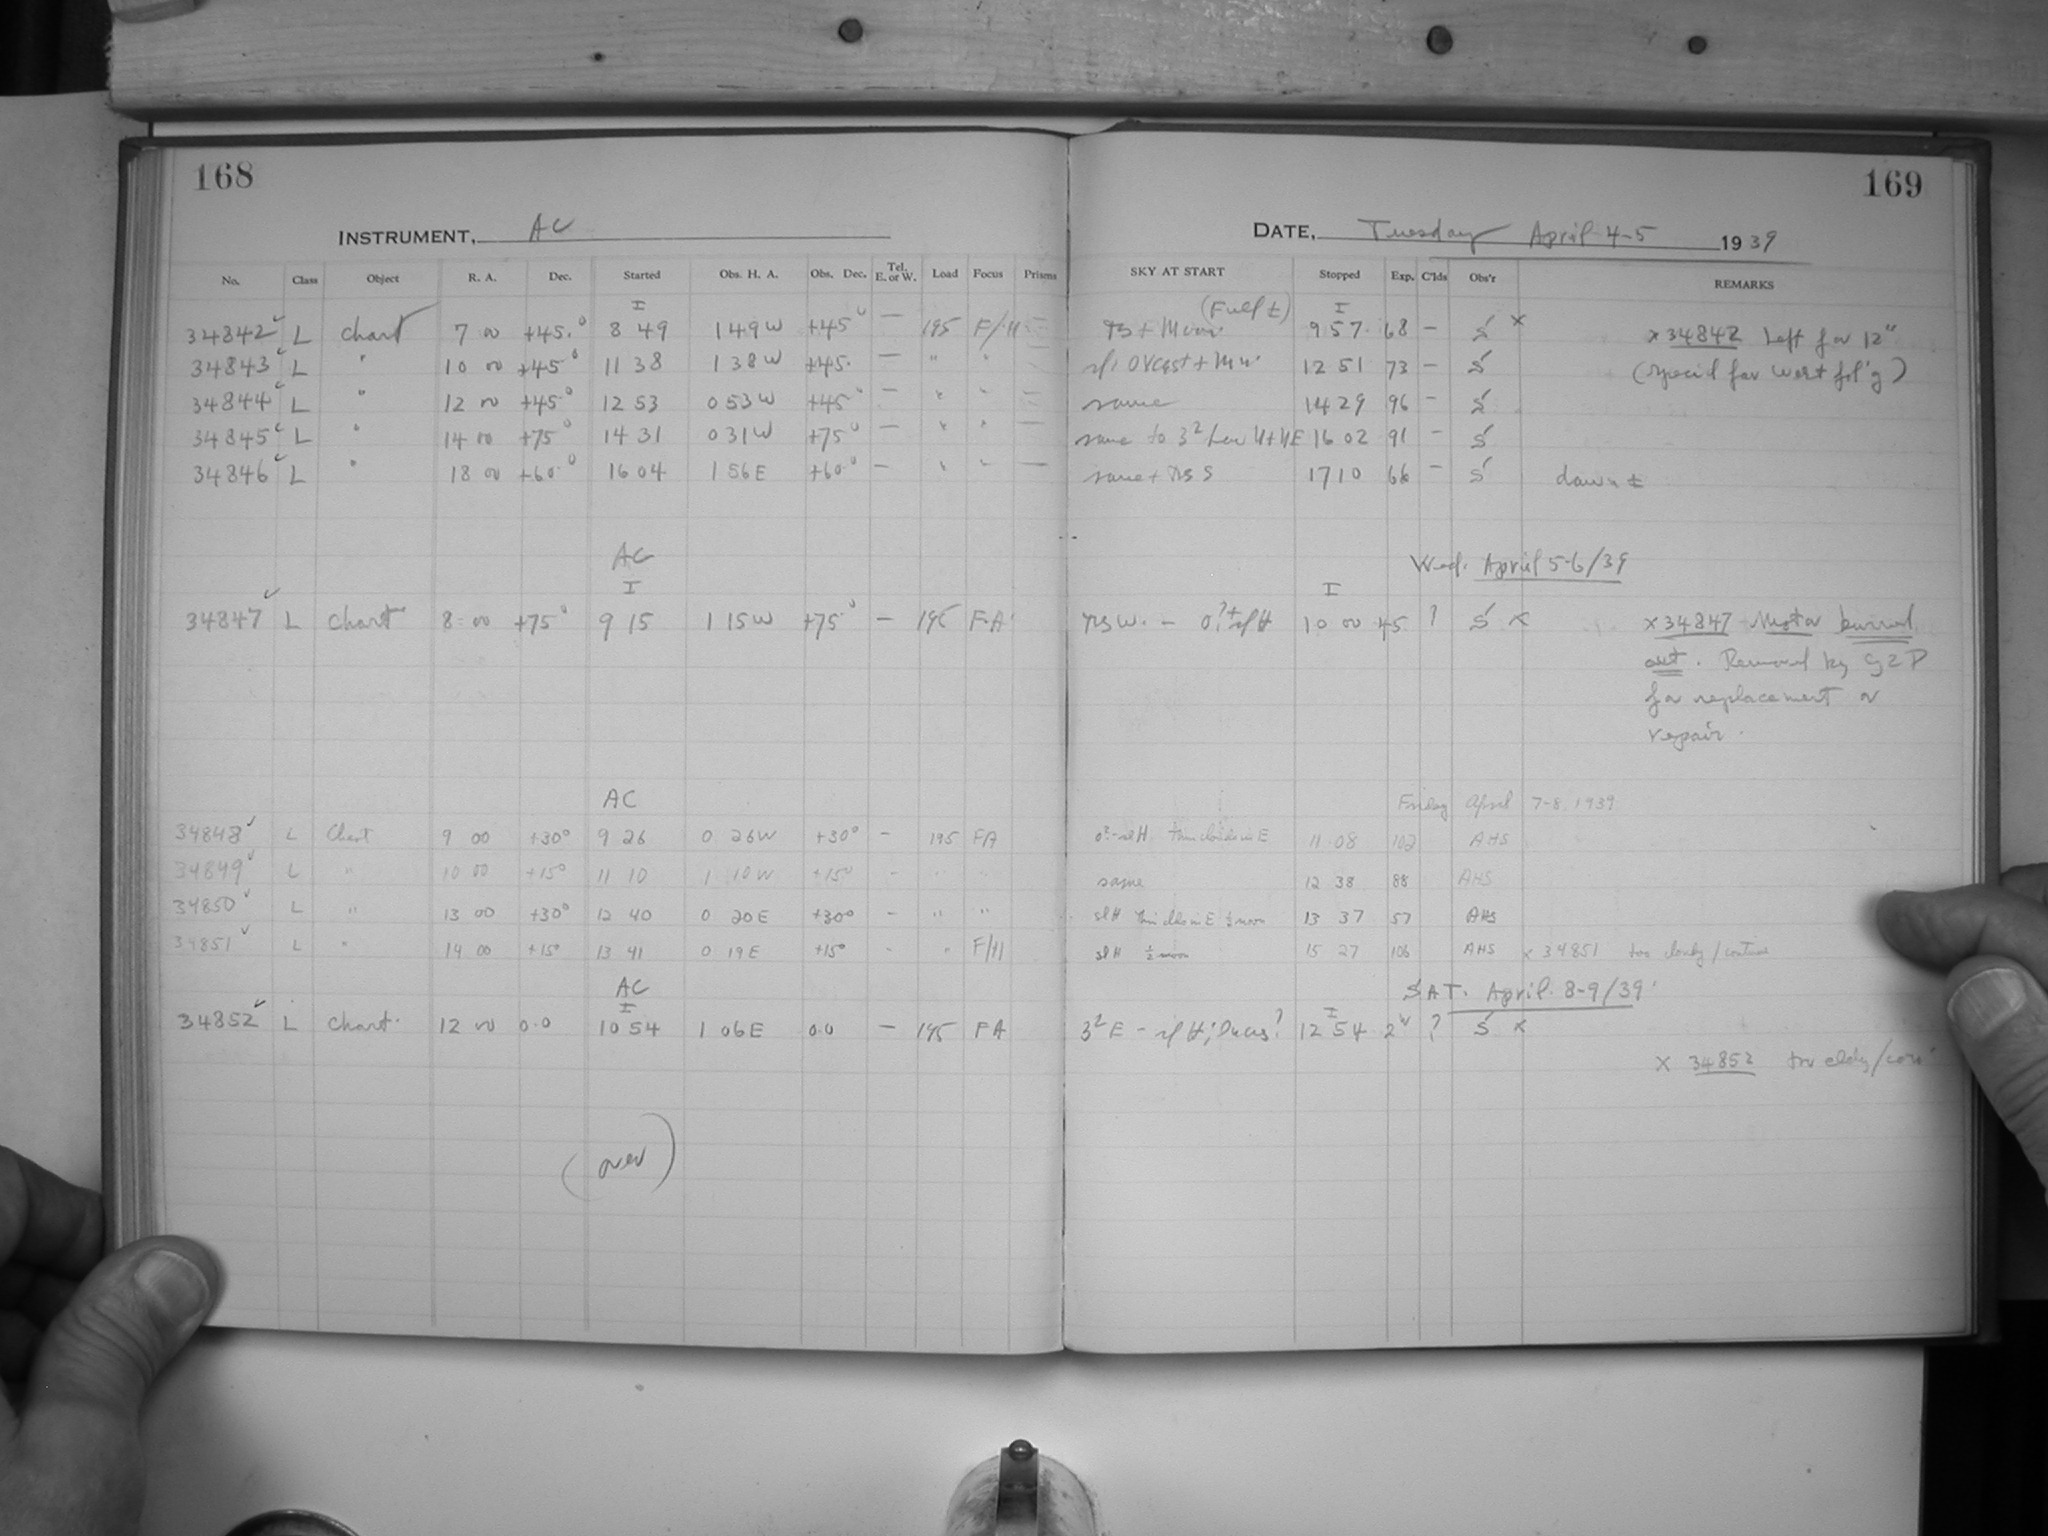 168
169
INSTRUMENT, AC
DATE, Tuesday April 4-5 1939
No. Class Object R. A. Dec. Started Obs. H. A. Obs. Dec. Tel. E. or W. Load Focus Prisms SKY AT START Stopped Exp. C'lds Obs'r REMARKS
I (Full ±) I
34842 ✓ L Chart 7 00 +45.° 8 49 1 49 W +45° — 195 F/H — + Moon 9 57 68 — S x x 34842 Left for 12"
34843 ✓ L " 10 00 +45° 11 38 1 38 W +45. — " " sl. Overcast + 12 51 73 — S (Special for West fol'g)
34844 ✓ L " 12 00 +45° 12 53 0 53 W +45° — " " — same 14 29 96 — S
34845 ✓ L " 14 00 +75° 14 31 0 31 W +75° — " " — same to 3² 16 02 91 — S
34846 ✓ L " 18 00 +60° 16 04 1 56 E +60° — " " — same + S 17 10 66 — S dawn ±
AC Wed. April 5-6/39
I I
34847 ✓ L Chart 8 00 +75° 9 15 1 15 W +75° — 195 FA 10 00 45 ? S x x 34847 Motor burned
out. Removed by
for replacement or
repair.
AC Friday April 7-8, 1939
34848 ✓ L Chart 9 00 +30° 9 26 0 26 W +30° - 195 FA 0²-sl H thin clouds in E 11 08 102 AHS
34849 ✓ L " 10 00 +15° 11 10 1 10 W +15° - " " same 12 38 88 AHS
34850 ✓ L " 13 00 +30° 12 40 0 20 E +30° - " " sl H thin clds in E ½ moon 13 37 57 AHS
34851 ✓ L " 14 00 +15° 13 41 0 19 E +15° " F/H sl H ½ moon 15 27 106 AHS x 34851 too cloudy/continue
AC SAT. April 8-9/39
I I
34852 ✓ L Chart. 12 00 0.0 10 54 1 06 E 0.0 — 195 FA 3² E - sl H; 12 54 2ʰ ? S x
x 34852 too cldy/con'
(over)